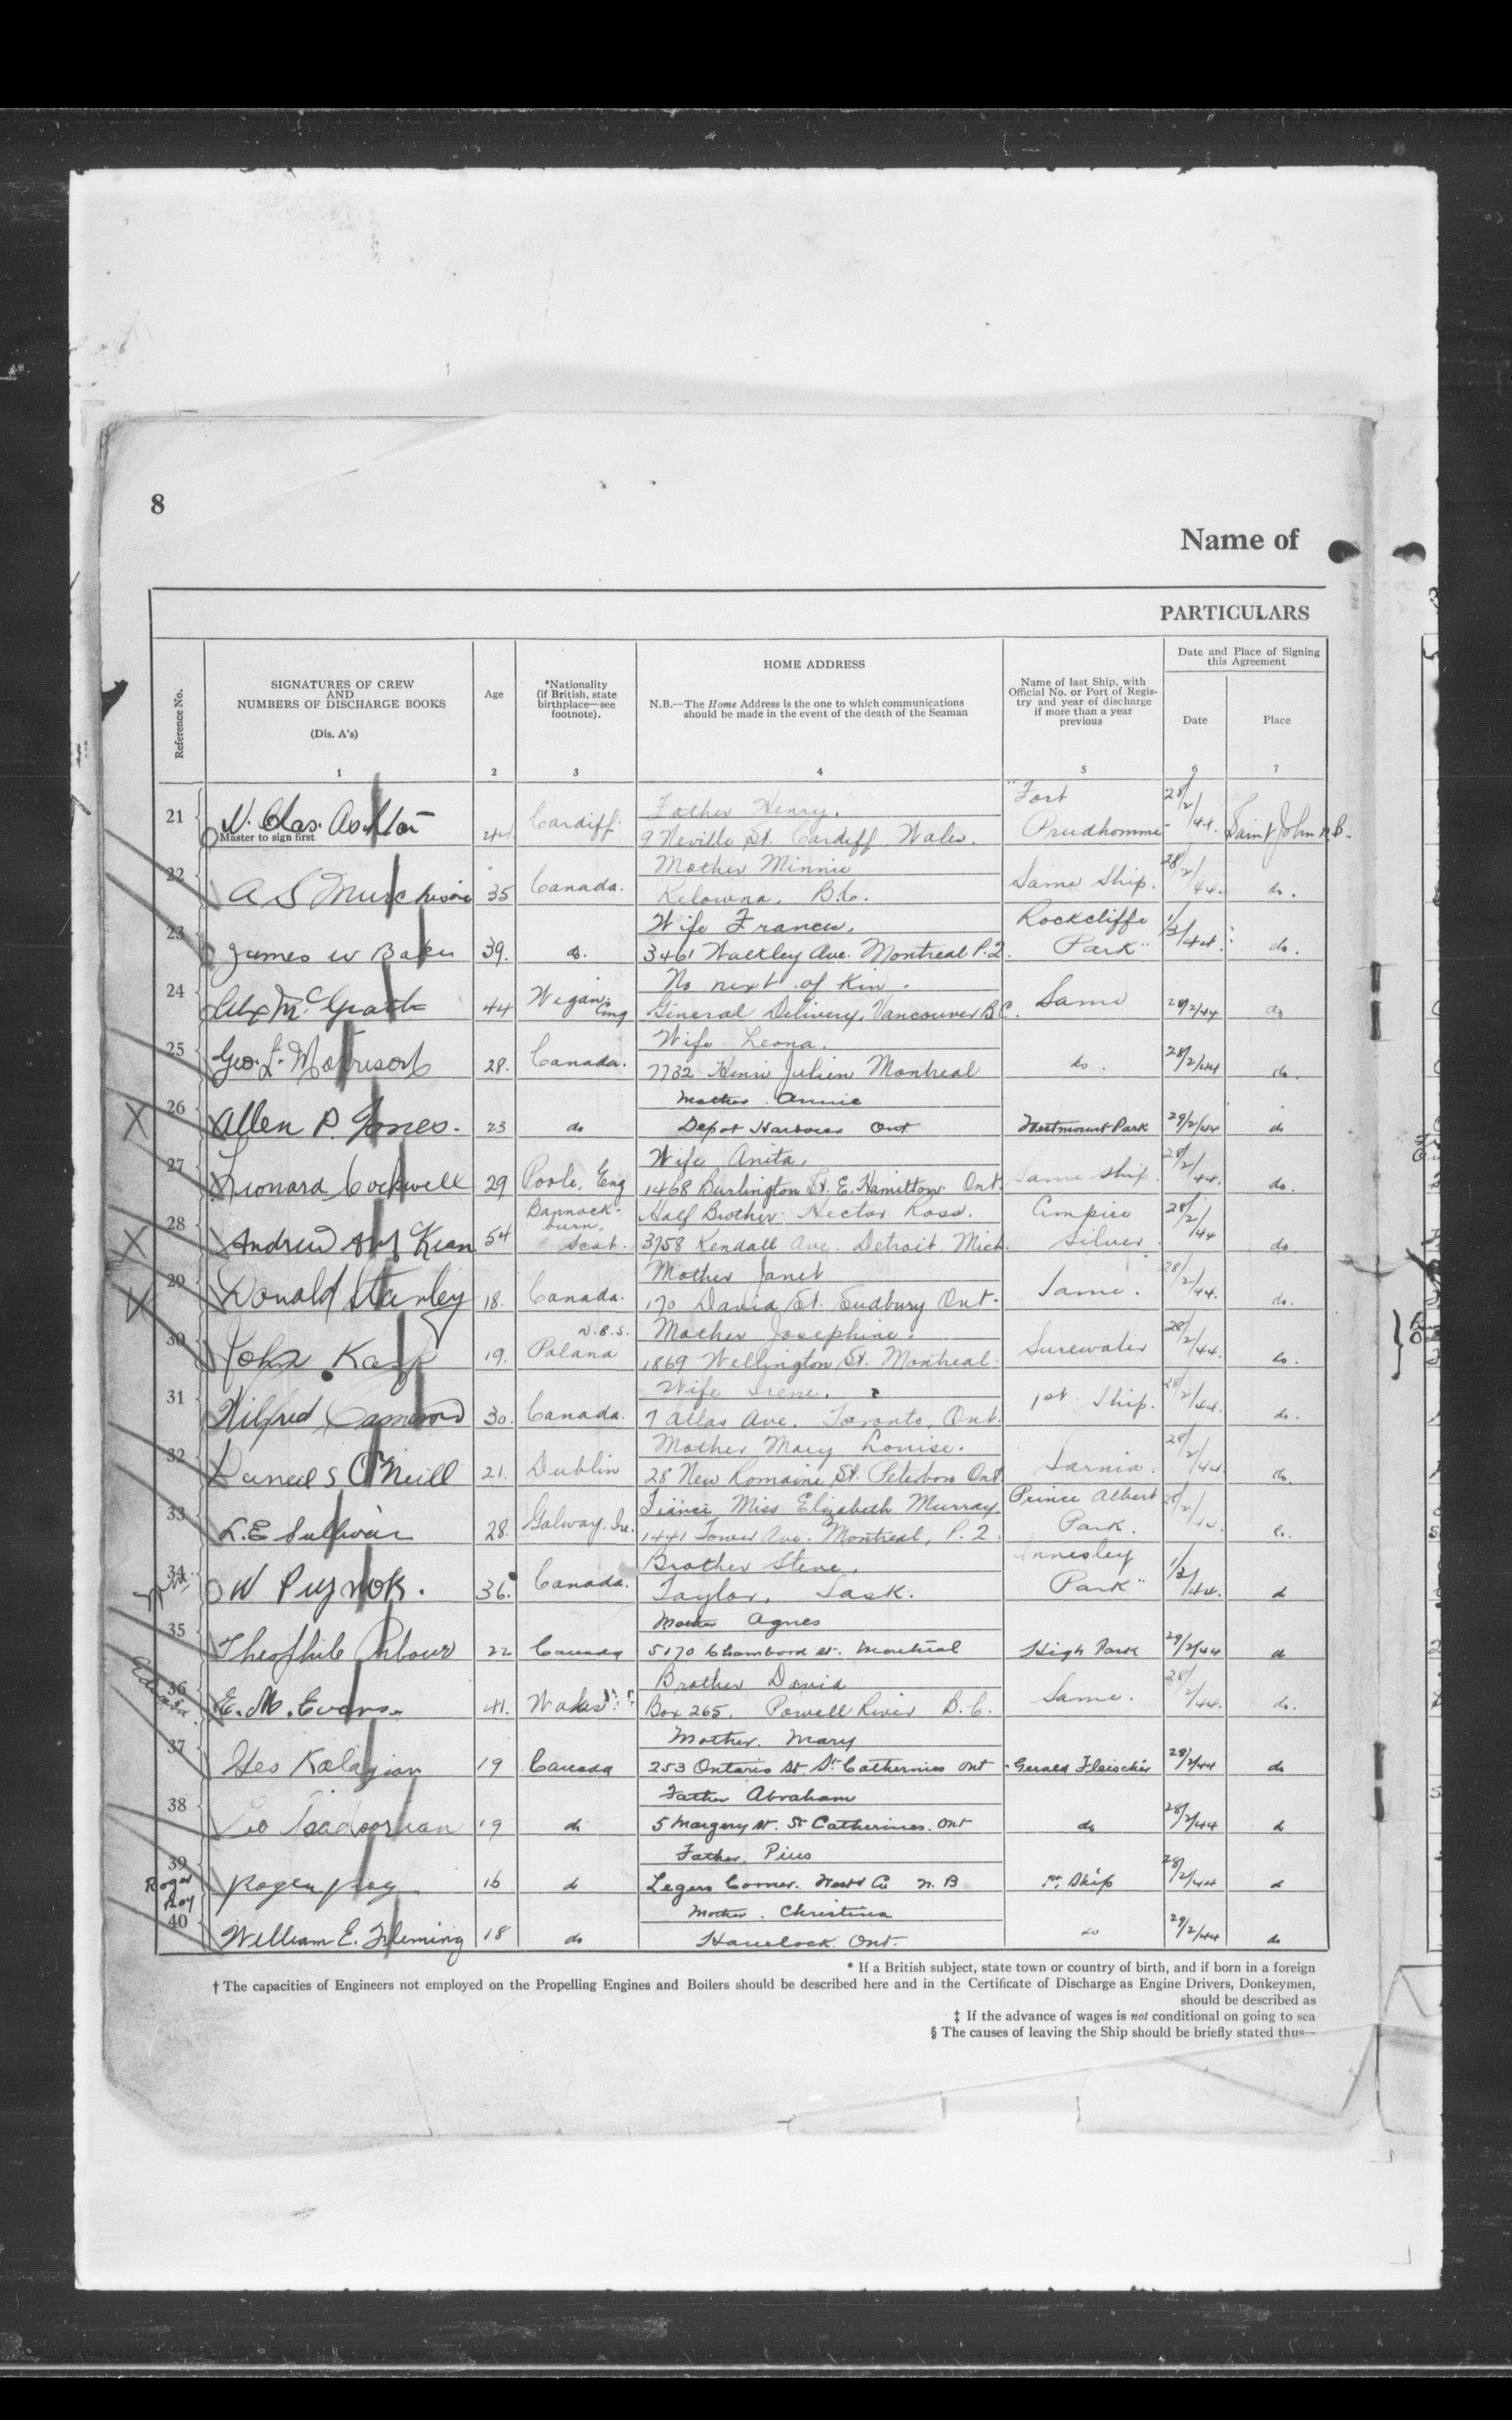 8
Name of
PARTICULARS
Reference No.
SIGNATURES OF CREW
AND
NUMBERS OF DISCHARGE BOOKS
(Dis. A's)
1
Age
2
*Nationality
(if British, state
birthplace—see
footnote).
3
HOME ADDRESS
N.B.—The Home Address is the one to which communications
should be made in the event of the death of the Seaman
4
Name of last Ship, with
Official No. or Port of Regis-
try and year of discharge
if more than a year
previous
5
Date and Place of Signing
this Agreement
Date
6
Place
7
Father Henry.
21 Chas. Ashton 44 Cardiff 9 Neville St. Cardiff Wales. "Fort Prudhomme" 28/2/44. Saint John N.B.
Master to sign first
Mother Minnie
22 A S Murchison 35 Canada. Kelowna, B.C. Same Ship. 28/2/44. do.
Wife Frances.
23 James W Baker 39. do. 3461 Walkley Ave. Montreal P.2. Rockcliffe Park" 1/3/44. do.
No next of Kin.
24 Alex McGrath 44 Wigan Eng General Delivery, Vancouver BC. Same 28/2/44 do
Wife Leona.
25 Geo. L. Morrison 28. Canada. 7732 Henri Julien Montreal do. 28/2/44 do.
Mother. Annie
X 26 Allen P. Jones. 23 do Depot Harbour Ont. Westmount Park 29/2/44 do
Wife Anita.
27 Leonard Cockwell 29 Poole, Eng 1468 Burlington St. E. Hamilton Ont. Same ship. 28/2/44. do.
Half Brother Hector Ross.
X 28 Andrew Kean 54 Bannockburn, Scot. 3758 Kendall Ave. Detroit Mich. Empire Silver 28/2/44 do
Mother Janet
29 Donald Stanley 18. Canada. 170 David St. Sudbury Ont. Same. 28/2/44. do.
Mother Josephine.
30 John 19. N.B.S. Poland 1869 Wellington St. Montreal. Surewater 28/2/44. do.
Wife Irene.
31 Wilfred Cameron 30. Canada. 7 Atlas Ave. Toronto, Ont. 1st Ship. 28/2/44. do.
Mother Mary Louise.
32 Daniel S O'Neill 21. Dublin 28 New Romaine St. Peterboro Ont. Sarnia. 28/2/44. do.
Miss Elizabeth Murray.
33 L. E Sullivan 28. Galway. Ire. 1441 Tower Ave. Montreal, P. 2. Prince Albert Park. 28/2/44. do.
Brother Steve.
34 W 36. Canada. Taylor, Sask. Park" 1/3/44. do
Mother Agnes
35 Theophile Arbour 22 Canada 5170 Chambord St. Montreal High Park 29/2/44 do
Brother David
36 E. M. Evans. 41. Wales Box 265, Powell River B.C. Same. 28/2/44. do.
Mother. Mary
37 Kolagian 19 Canada 253 Ontario St St. Catherines Ont Gerald Fleischer 28/2/44 do
Father Abraham
38 Leo 19 do 5 Margery St. St Catherines. Ont do 28/2/44 do
Father, Pius
39 Roger Roy Roger Roy 16 do Legers Corner. West Co N. B 1st Ship 28/2/44 do
Mother. Christina
40 William E. Fleming 18 do Havelock. Ont. do 29/2/44 do
* If a British subject, state town or country of birth, and if born in a foreign
† The capacities of Engineers not employed on the Propelling Engines and Boilers should be described here and in the Certificate of Discharge as Engine Drivers, Donkeymen,
should be described as
‡ If the advance of wages is not conditional on going to sea
§ The causes of leaving the Ship should be briefly stated thus—